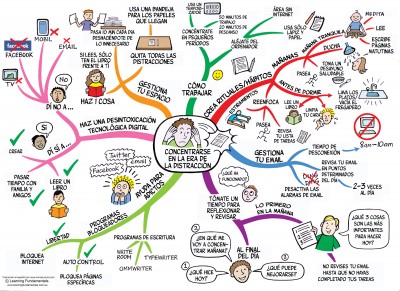 CONCENTRARSE
EN LA ERA DE
LA DISTRACCIÓN
FACEBOOK
MOBIL
EMAIL
TV
NO
DÍ NO A ...
SI
DÍ SÍ A ...
CREAR
PASAR TIEMPO
CON FAMILIA
AMIGOS
LEER UN
LIBRO
HAZ UNA DESINTOXICACIÓN
TECNOLÓGICA DIGITAL
HAZ 1 COSA
SI LEES, SÓLO
TEN EL LIBRO
FRENTE A TÍ
GESTIONA
TU ESPACIO
USA UNA BANDEJA
PARA LOS PAPELES
QUE LLEGAN
PASA 10 MIN CADA DÍA
DESHACIÉNDOTE DE
LO INNECESARIO
QUITA TODAS LAS
DISTRACCIONES
CÓMO
TRABAJAR
CONCÉNTRATE
EN PEQUEÑOS
PERIODOS
10 MINUTOS DE
TRABAJO
ALÉJATE DEL
ORDENADOR
ÁREA SIN
INTERNET
USA SÓLO
LÁPIZ Y
PAPEL
CREA RITUALES/HÁBITOS
MAÑANAS
MAÑANA TRANQUILA
MEDITA
LEE
ESCRIBE
PÁGINAS
MATUTINAS
DUCHA
PASEA
TOMA UN
DESAYUNO
SALUDABLE
ANTES DE DORMIR
LAVA LOS
PLATOS/
VACÍA EL
FREGADERO
LEE UN
LIBRO
LIMPIA
TU CARA
REENFOCA
PASEA
REVISA
TU LISTA
DE TAREAS
GESTIONA
TU EMAIL
TIEMPO DE
DESCONEXIÓN
8am-10am
REVISA TU EMAIL
EN PUNTOS
DETERMINADOS
DEL DÍA
2-3 VECES AL
DÍA
DESACTIVA LAS
ALARMAS DE EMAIL
TÓMATE UN
TIEMPO PARA
REFLEXIONAR Y
REVISAR
¿QUÉ HA
FUNCIONADO?
LO PRIMERO
EN LA MAÑANA
¿QUÉ 3 COSAS
SON LAS MÁS
IMPORTANTES
PARA HACER
HOY?
NO REVISES TU EMAIL
HASTA QUE NO HAYAS
COMPLETADO TUS TAREAS
AL FINAL
DEL DÍA
¿EN QUÉ ME
VOY A CONCEN-
TRAR MAÑANA?
¿QUÉ HICE
HOY?
¿QUÉ PUEDE
MEJORARSE?
AYUDA PARA
ADICTOS
Twitter
email
Facebook
PROGRAMAS
BLOQUEADORES
LIBERTAD
BLOQUEA
INTERNET
AUTO CONTROL
BLOQUEA PÁGINAS
ESPECÍFICAS
PROGRAMAS DE ESCRITURA
WRITE
ROOM
TYPEWRITER
OMMWRITER
© Learning Fundamentals